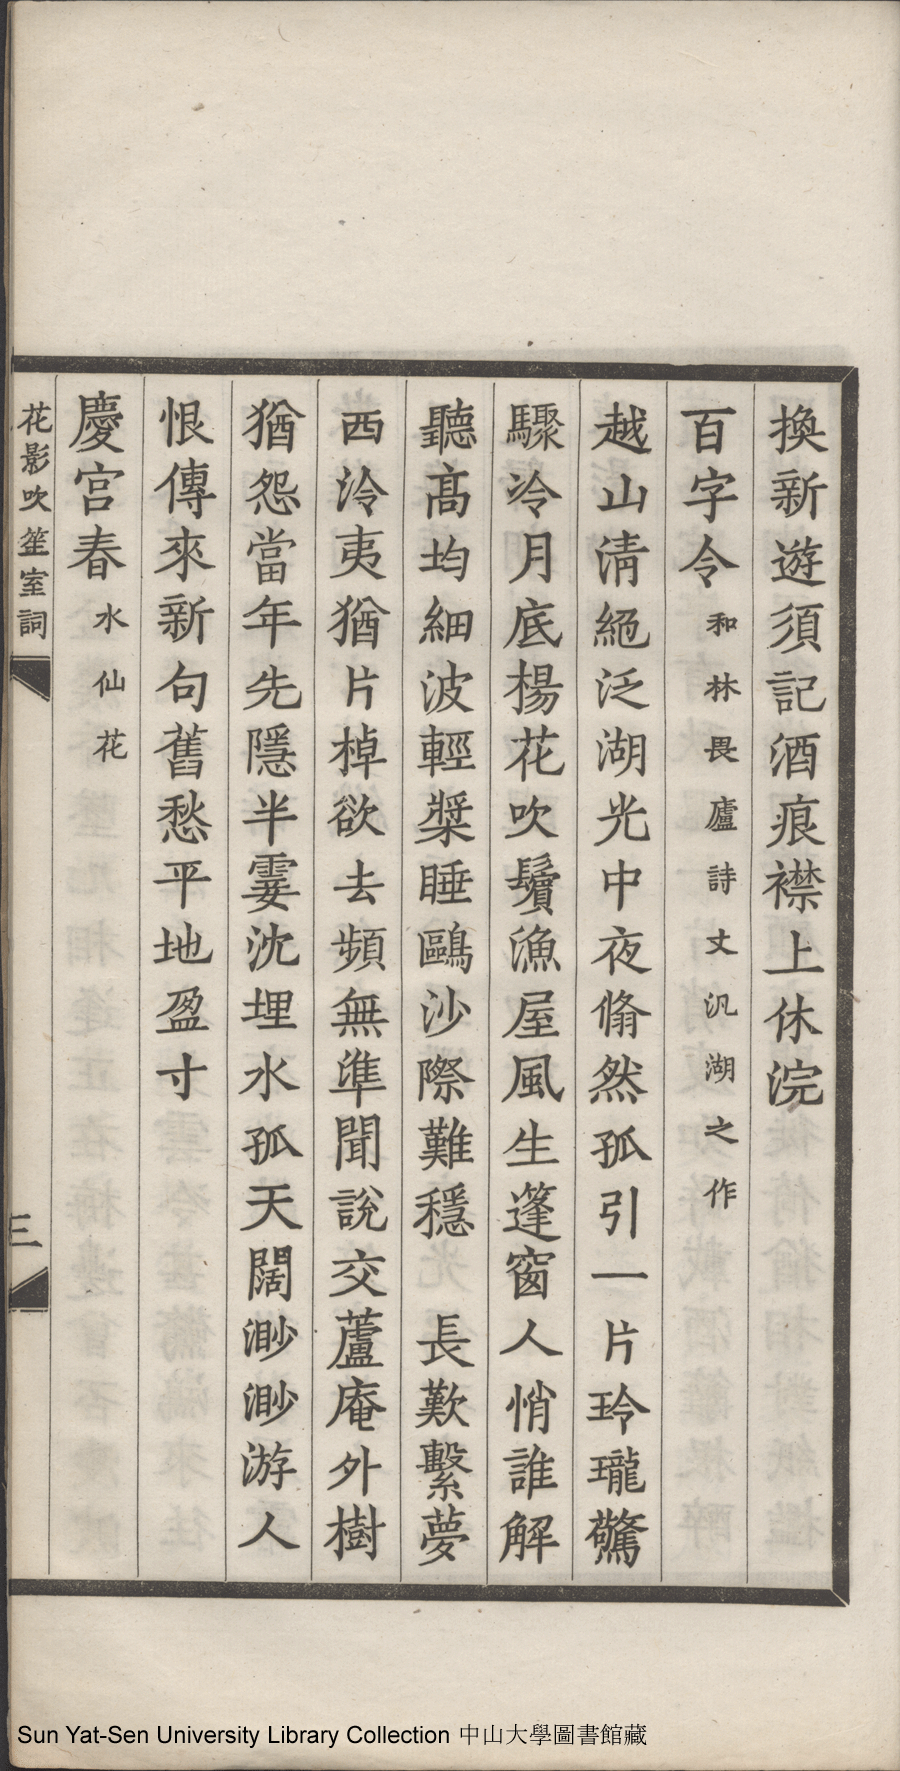 換新遊須記酒痕襟上休浣
百字令 和林畏廬詩丈汎湖之作
越山清絕泛湖光中夜翛然孤引一片玲瓏驚
驟冷月底楊花吹鬢漁屋風生蓬窗人悄誰解
聽高均細波輕槳睡鷗沙際難穩 長歎繫夢
西泠夷猶片棹欲去頻無準聞說交蘆庵外樹
猶怨當年先隱半霎沈埋水孤天闊渺渺游人
恨傳來新句舊愁平地盈寸
慶宮春 水仙花
花影吹笙室詞
三
Sun Yat-Sen University Library Collection 中山大學圖書館藏